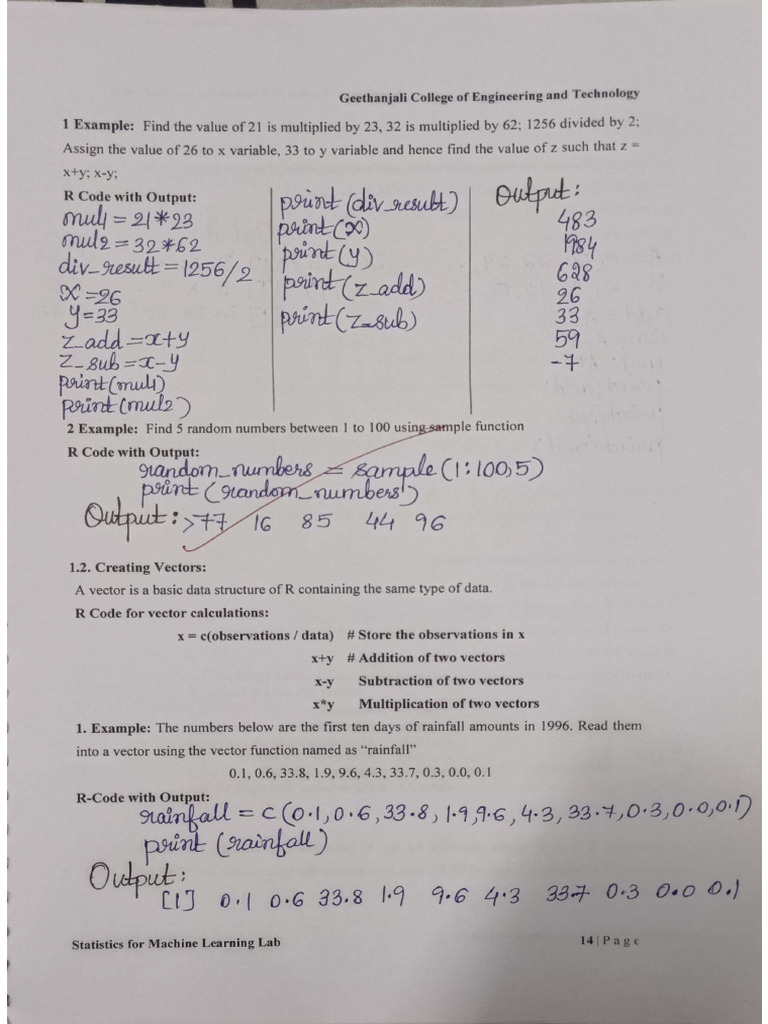 Geethanjali College of Engineering and Technology
1 Example: Find the value of 21 is multiplied by 23, 32 is multiplied by 62; 1256 divided by 2;
Assign the value of 26 to x variable, 33 to y variable and hence find the value of z such that z =
x+y; x-y;
R Code with Output:
mul1 = 21*23
mul2 = 32*62
div_result = 1256/2
x = 26
y = 33
z_add = x+y
z_sub = x-y
print(mul1)
print(mul2)
print(div_result)
print(x)
print(y)
print(z_add)
print(z_sub)
Output:
483
1984
628
26
33
59
-7
2 Example: Find 5 random numbers between 1 to 100 using sample function
R Code with Output:
random_numbers = sample(1:100,5)
print(random_numbers)
Output: >77 16 85 44 96
1.2. Creating Vectors:
A vector is a basic data structure of R containing the same type of data.
R Code for vector calculations:
x = c(observations / data) # Store the observations in x
x+y # Addition of two vectors
x-y Subtraction of two vectors
x*y Multiplication of two vectors
1. Example: The numbers below are the first ten days of rainfall amounts in 1996. Read them
into a vector using the vector function named as “rainfall”
0.1, 0.6, 33.8, 1.9, 9.6, 4.3, 33.7, 0.3, 0.0, 0.1
R-Code with Output:
rainfall = c(0.1,0.6,33.8,1.9,9.6,4.3,33.7,0.3,0.0,0.1)
print(rainfall)
Output:
[1] 0.1 0.6 33.8 1.9 9.6 4.3 33.7 0.3 0.0 0.1
Statistics for Machine Learning Lab
14 | Page